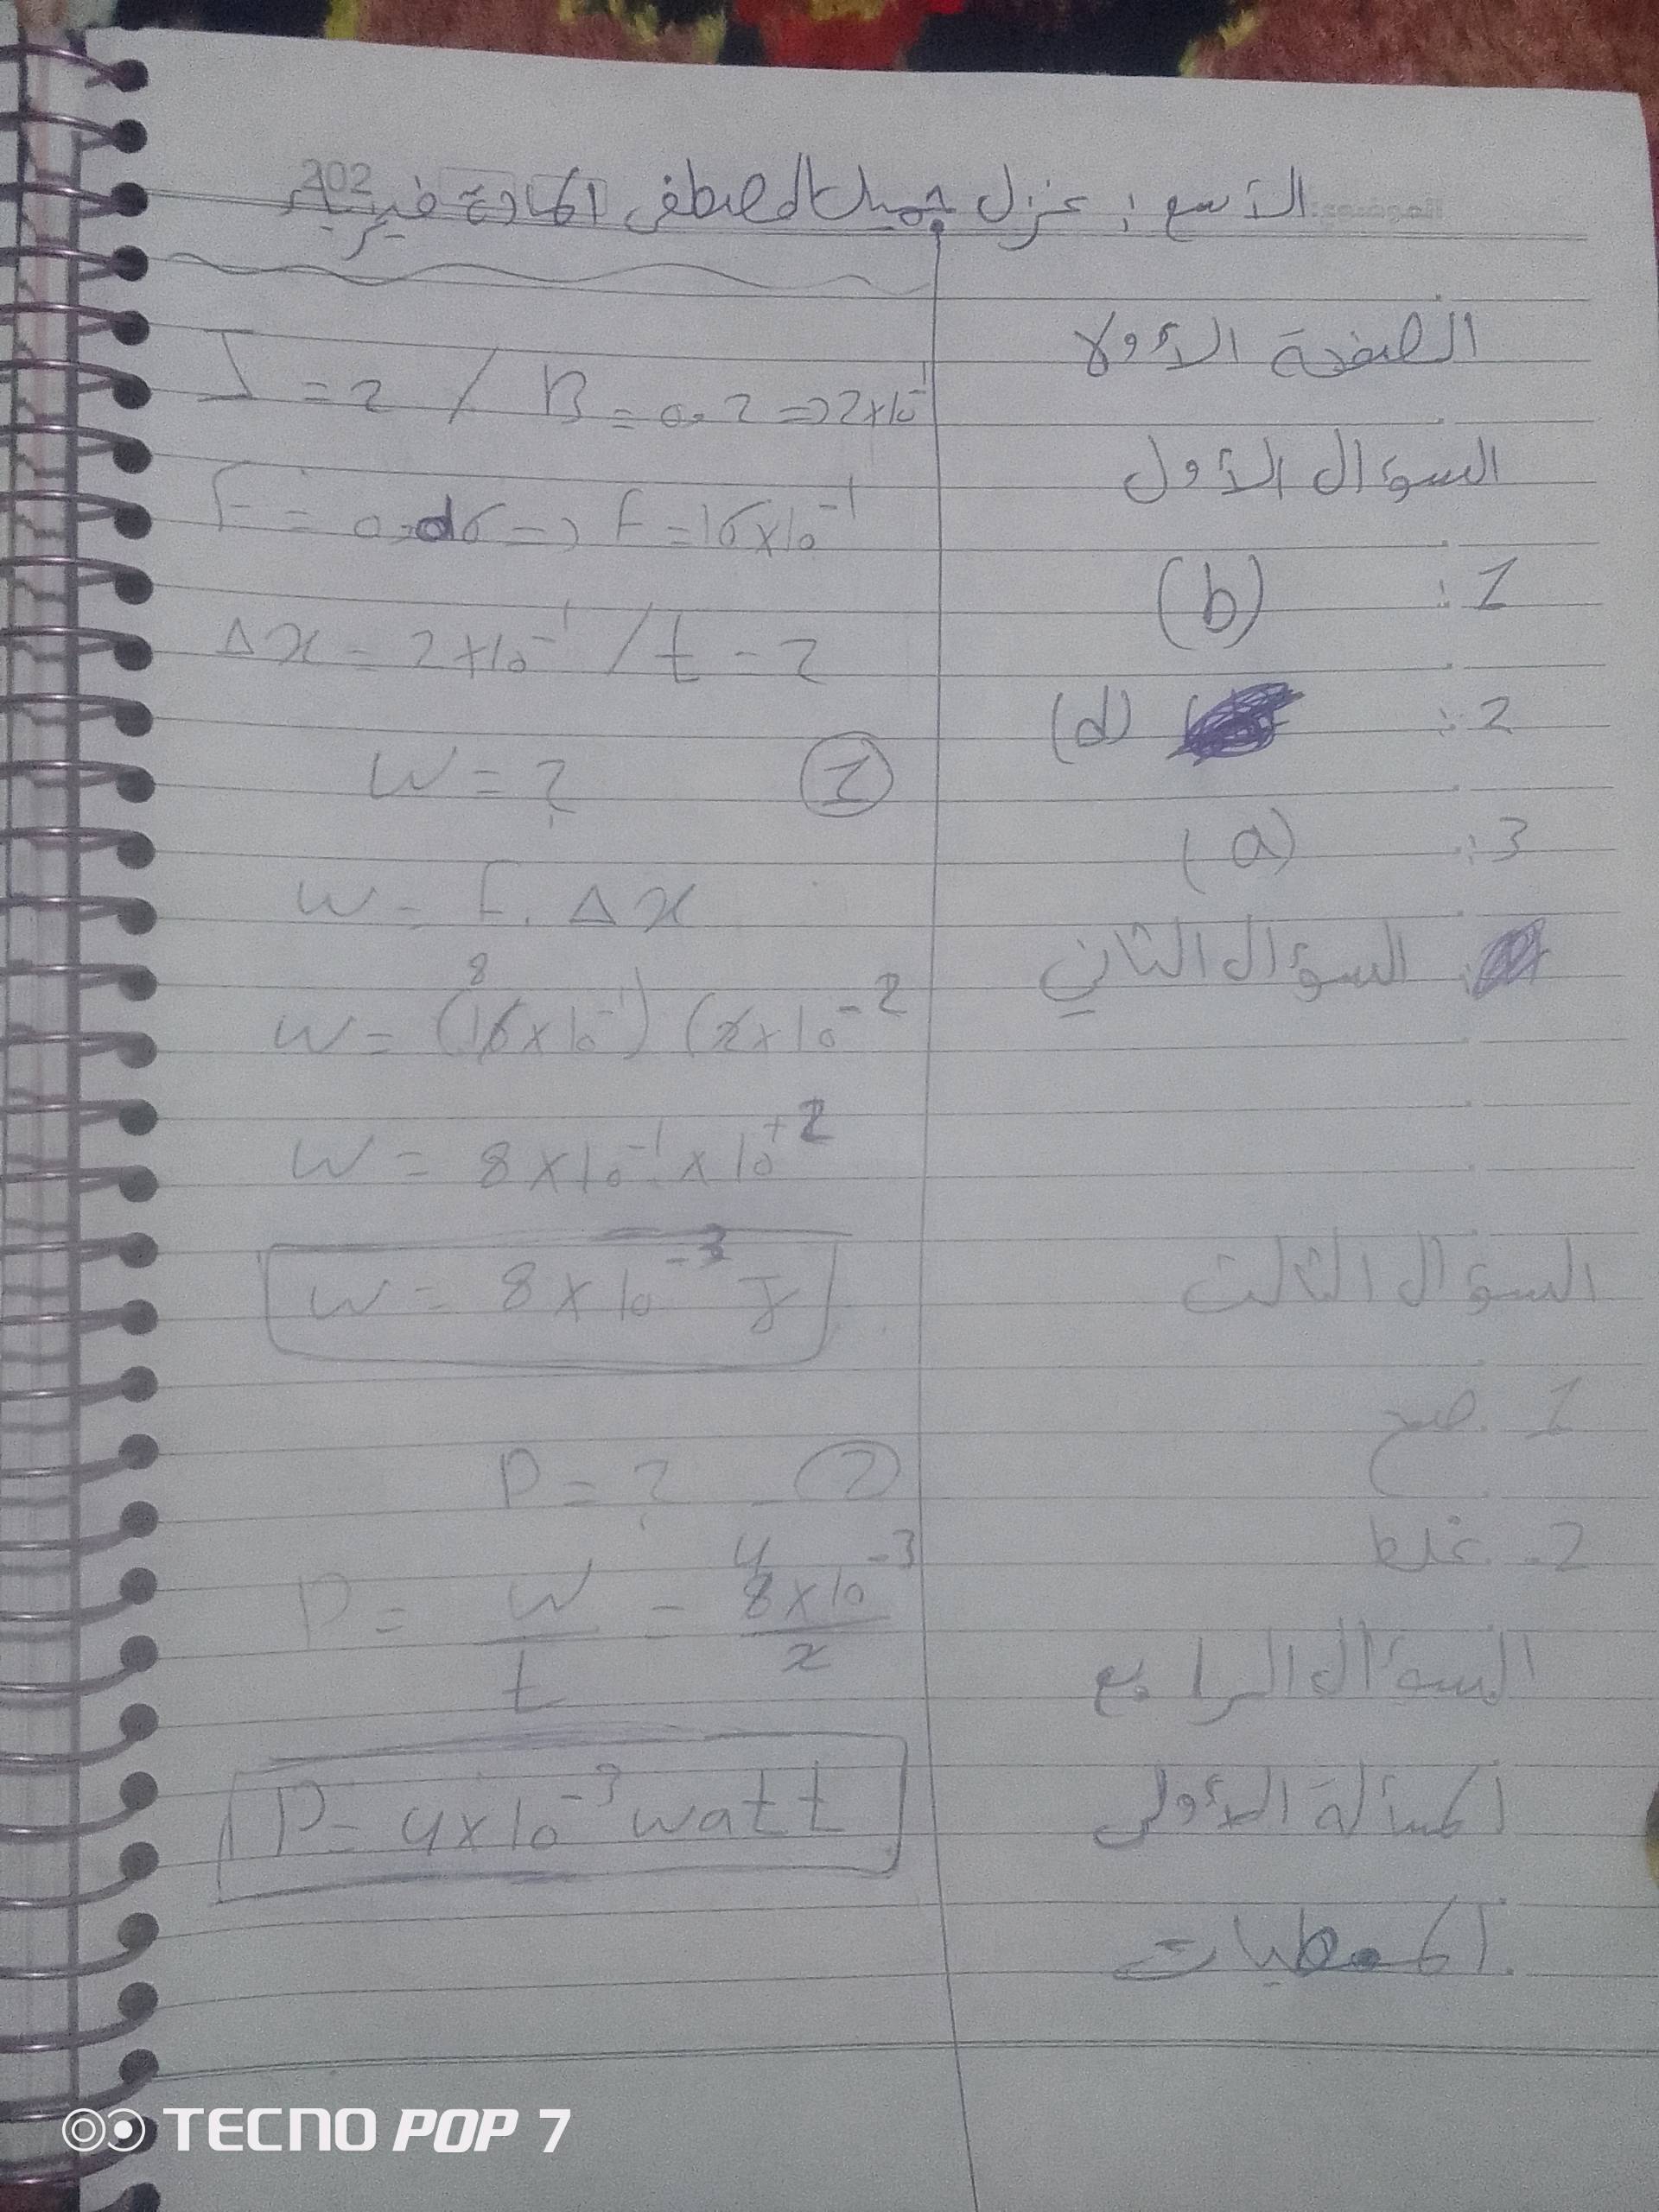 الأسم : عزل جميل المصطفى المادة فيزياء
202
الصفحة الأولا
السؤال الأول
1: (b)
2: (d)
3: (a)
السؤال الثاني
السؤال الثالث
1. صح
2- غلط
السؤال الرابع
المسألة الأولى
المعطيات
I = 2 / B = 0.2 => 2×10⁻¹
F = 16×10⁻¹
Δx = 2×10⁻¹ / t = 2
W = ? ①
W = F. Δx
W = (16×10⁻¹) (2×10⁻²
8
W = 8×10⁻¹×10⁺²
W = 8×10⁻³ J
P = ? ②
P = W/t = 8×10⁻³/2
4
P = 4×10⁻³ watt
TECNO POP 7